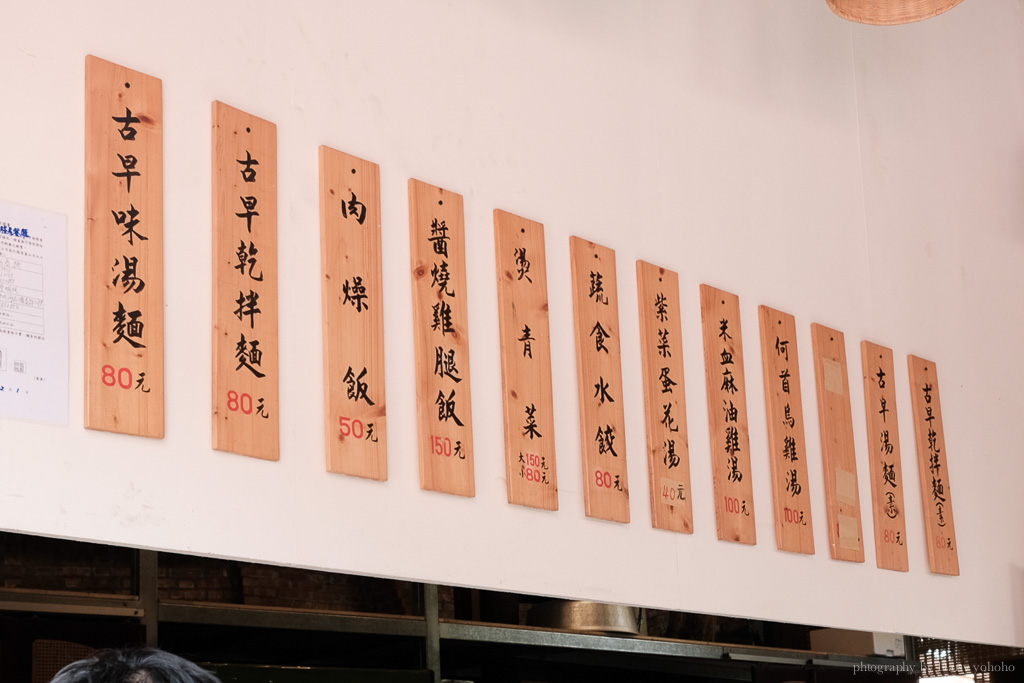 古早味湯麵
80元
古早乾拌麵
80元
肉燥飯
50元
醬燒雞腿飯
150元
燙青菜
大150元
小80元
蔬食水餃
80元
紫菜蛋花湯
40元
米血麻油雞湯
100元
何首烏雞湯
100元
古早湯麵(素)
80元
古早乾拌麵(素)
80元
yohoho